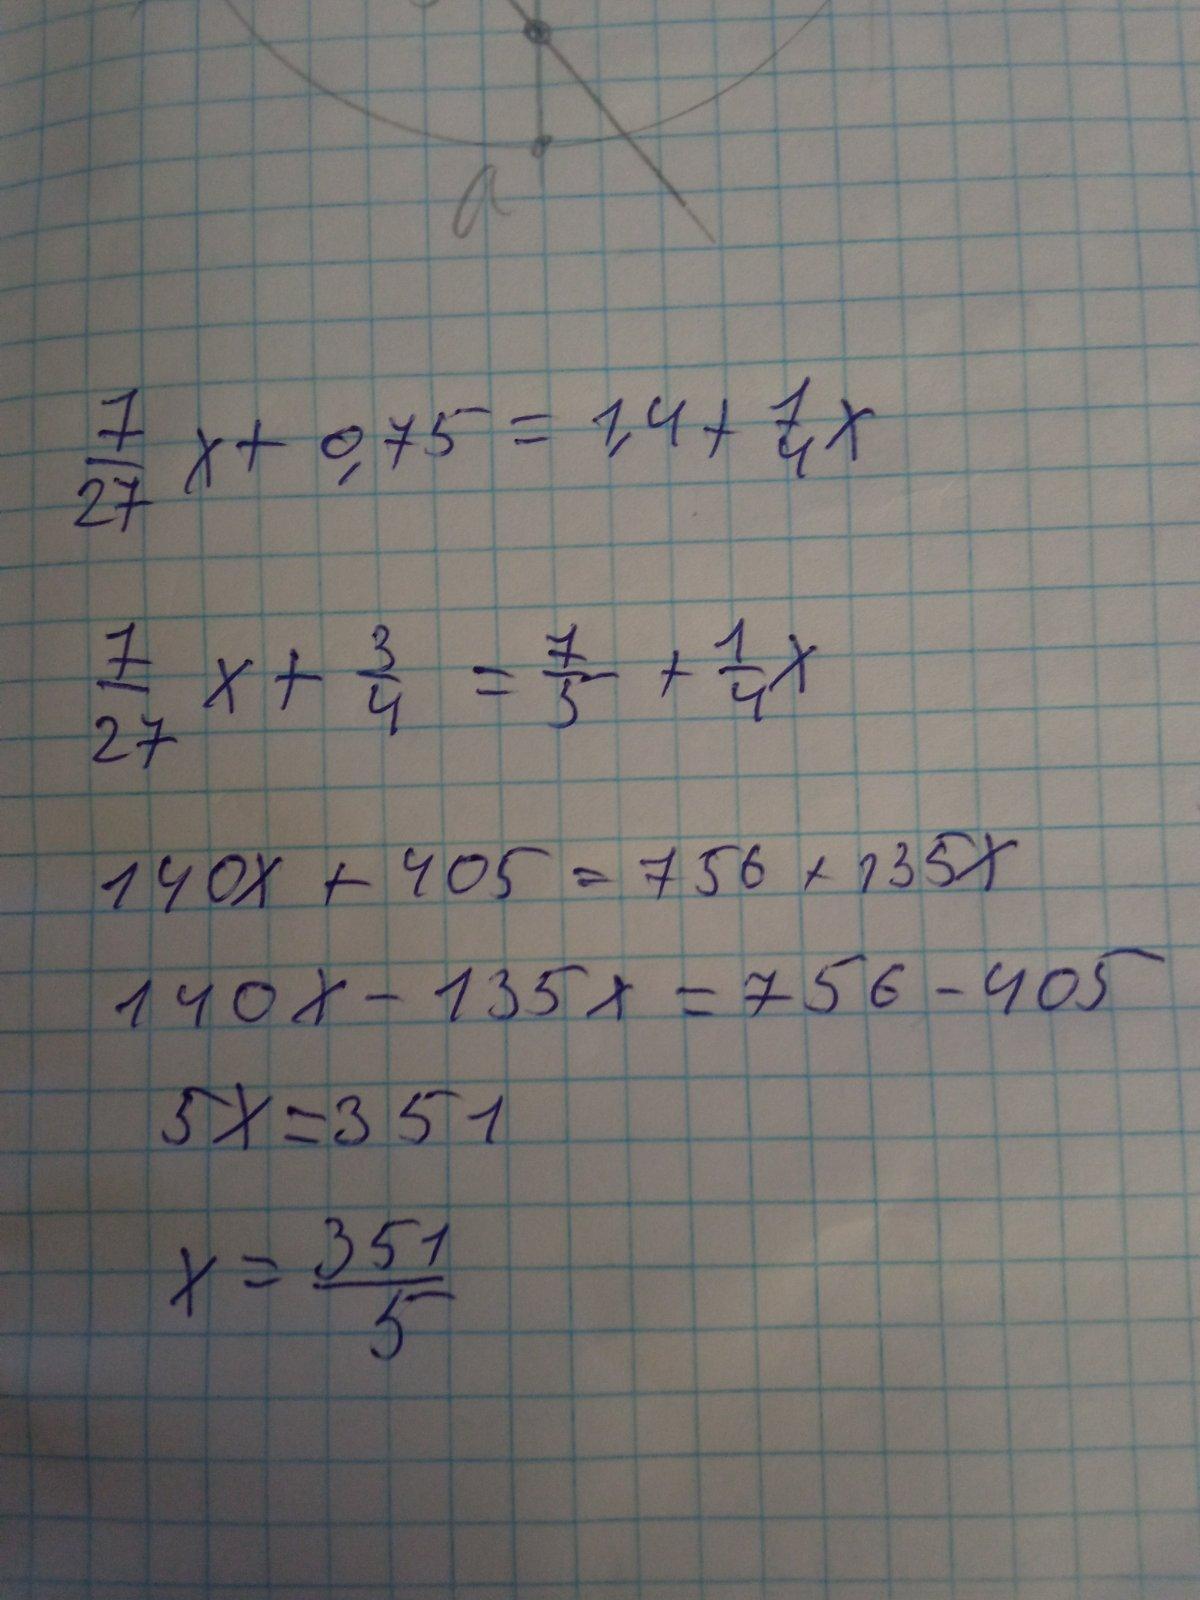 a
7/27 x + 0,75 = 1,4 + 1/4 x
7/27 x + 3/4 = 7/5 + 1/4 x
140x + 405 = 756 + 135x
140x - 135x = 756 - 405
5x = 351
x = 351/5